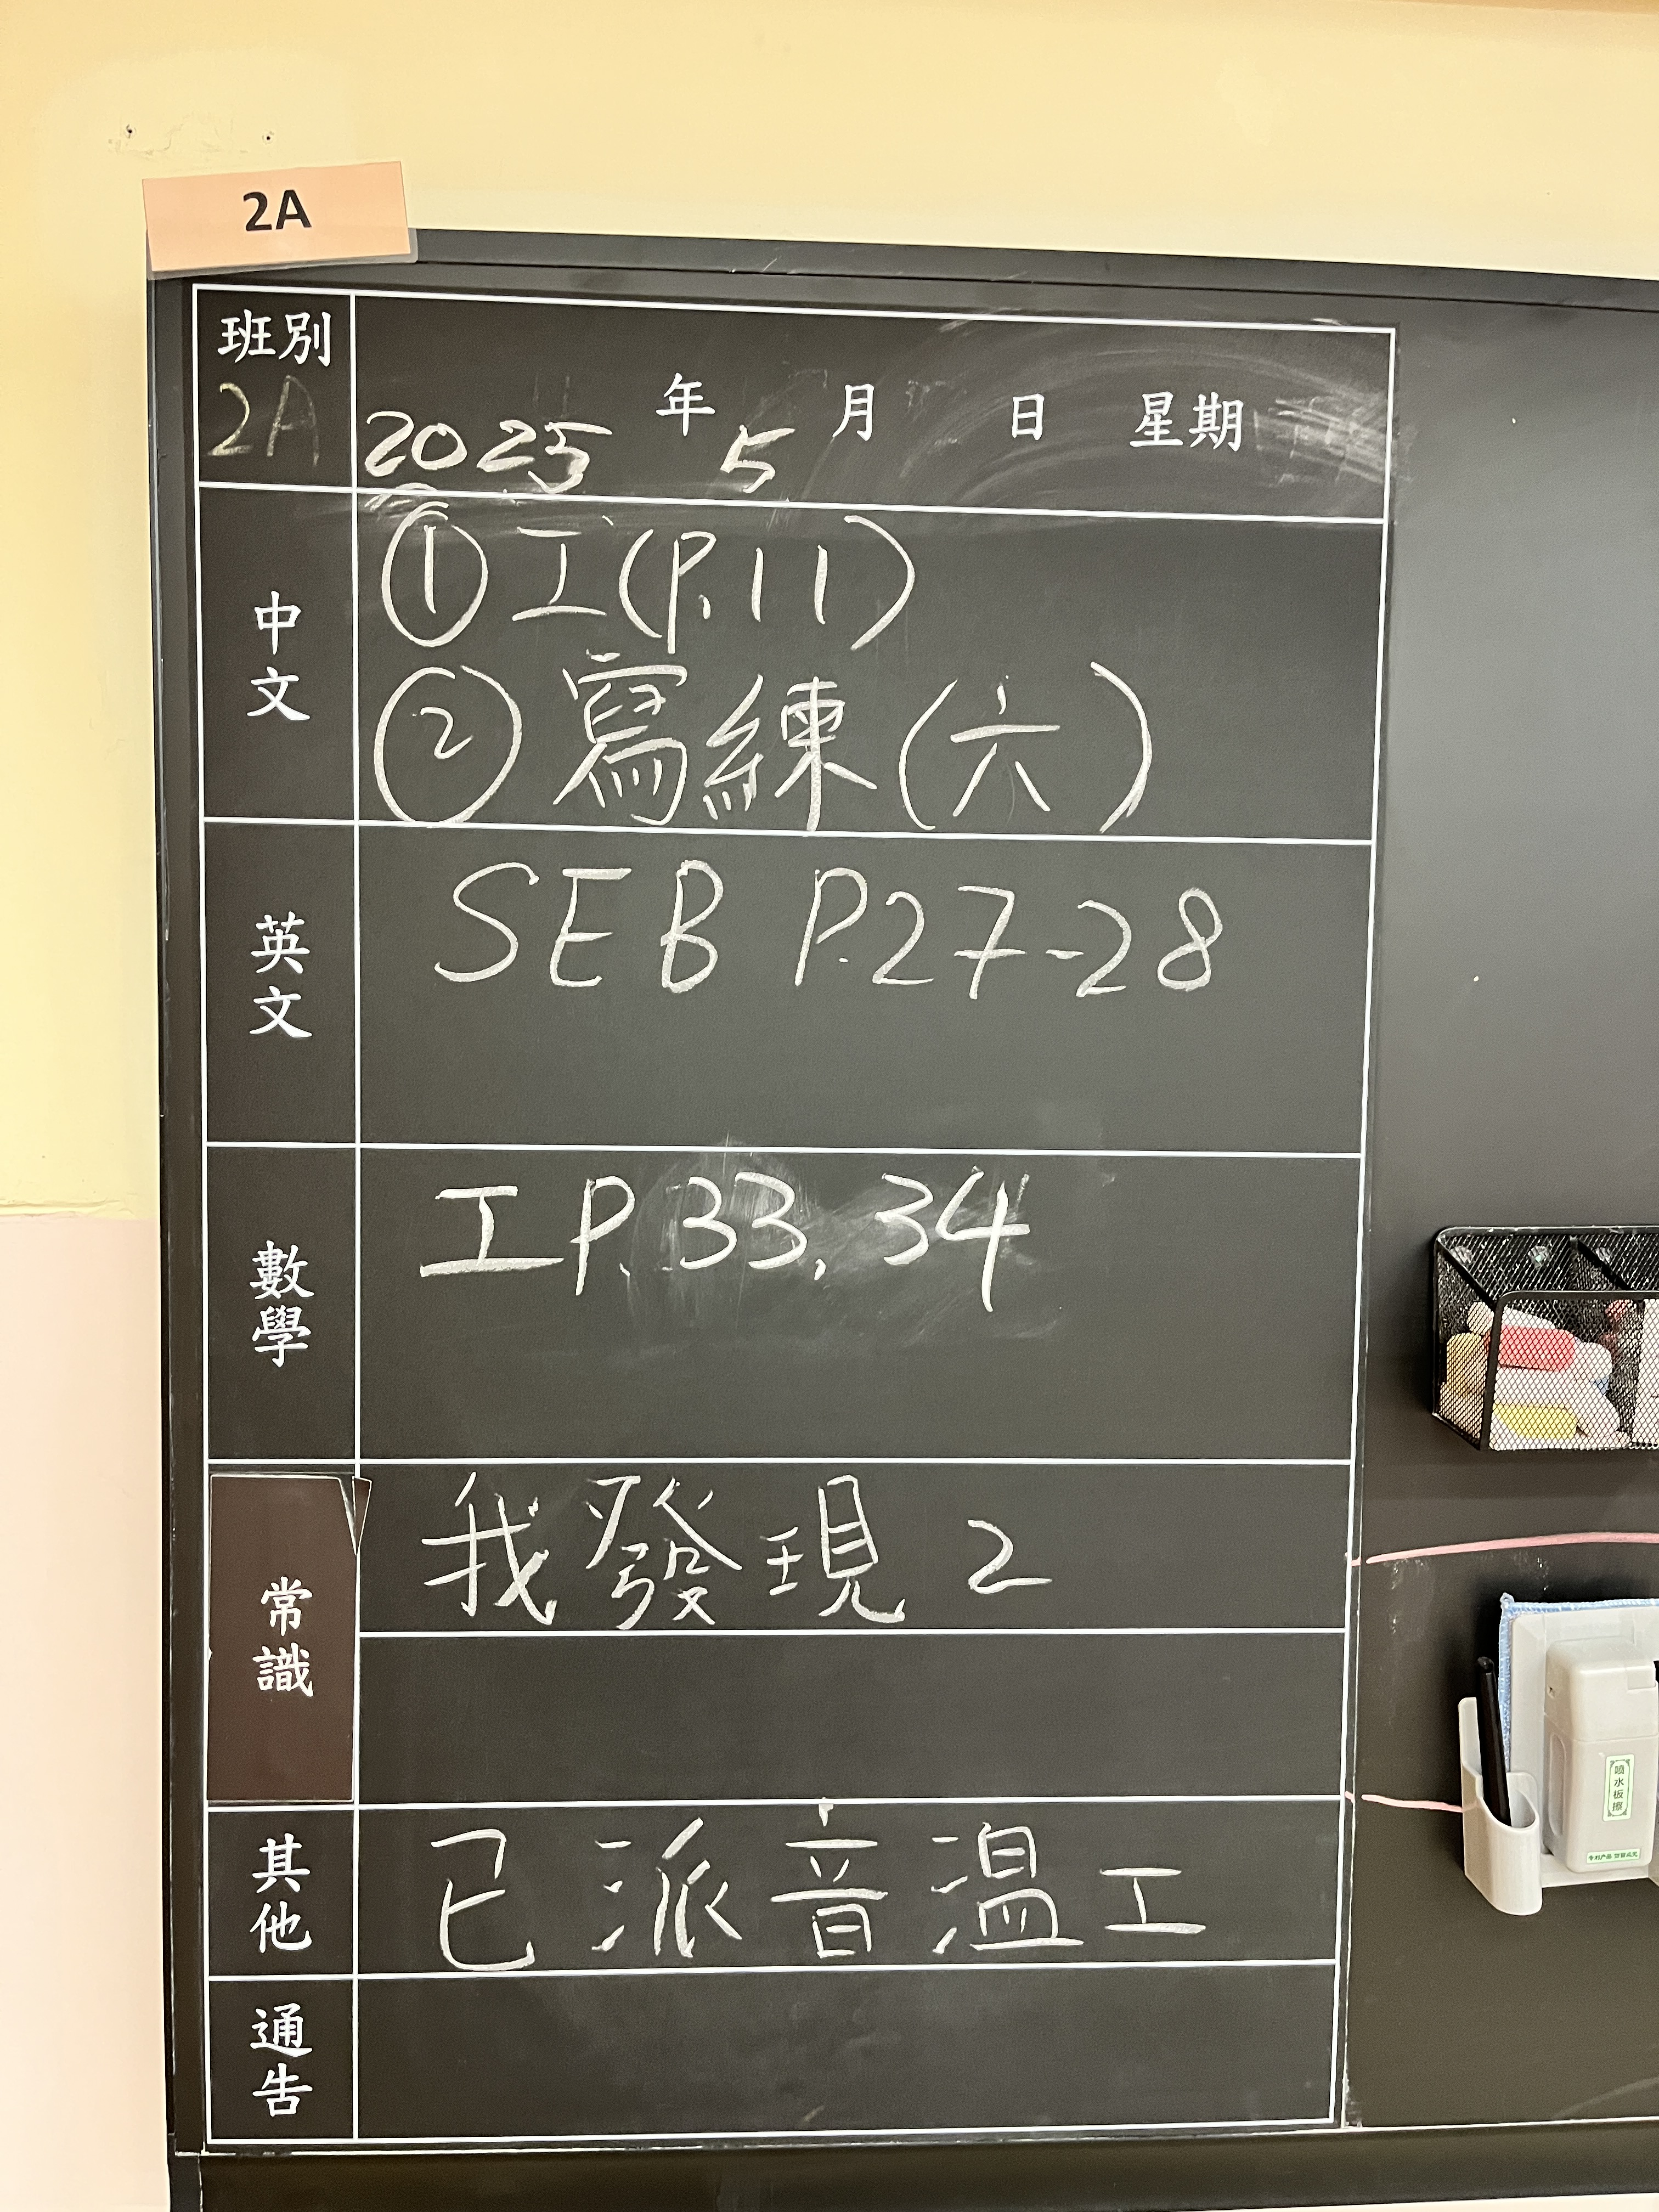 2A
班別
2A
2025年5月 日 星期
中文
①工(P.11)
②寫練(六)
英文
SEB P.27-28
數學
工P.33,34
常識
我發現2
其他
已派音溫工
通告
噴水板擦